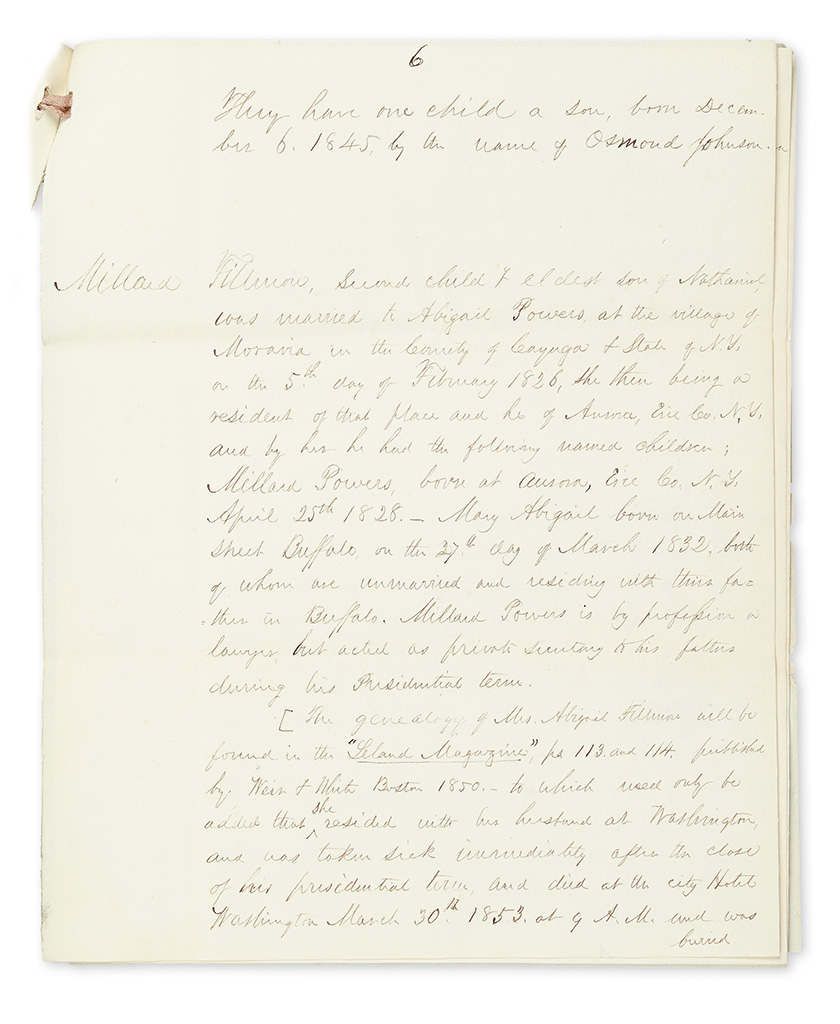 6
They have one child a son, born Decem-
ber 6. 1845, by the name of Osmond Johnson.
Millard Fillmore, Second child & eldest son of Nathaniel,
was married to Abigail Powers, at the village of
Moravia in the County of Cayuga & State of N.Y.
on the 5th day of February 1826, she then being a
resident of that place and he of Aurora, Erie Co. N.Y.
and by her he had the following named children;
Millard Powers, born at Aurora, Erie Co. N.Y.
April 25th 1828. — Mary Abigail born on Main
street Buffalo, on the 27th day of March 1832, both
of whom are unmarried and residing with their fa=
=ther in Buffalo. Millard Powers is by profession a
lawyer, but acted as private secretary to his father
during his Presidential term.
[ The genealogy of Mrs. Abigail Fillmore will be
found in the "Leland Magazine", pa 113. and 114. published
by Weir & White Boston 1850. — to which need only be
added that she resided with her husband at Washington,
and was taken sick immediately after the close
of his presidential term, and died at the city Hotel
Washington March 30th 1853. at 9 A.M. and was
buried